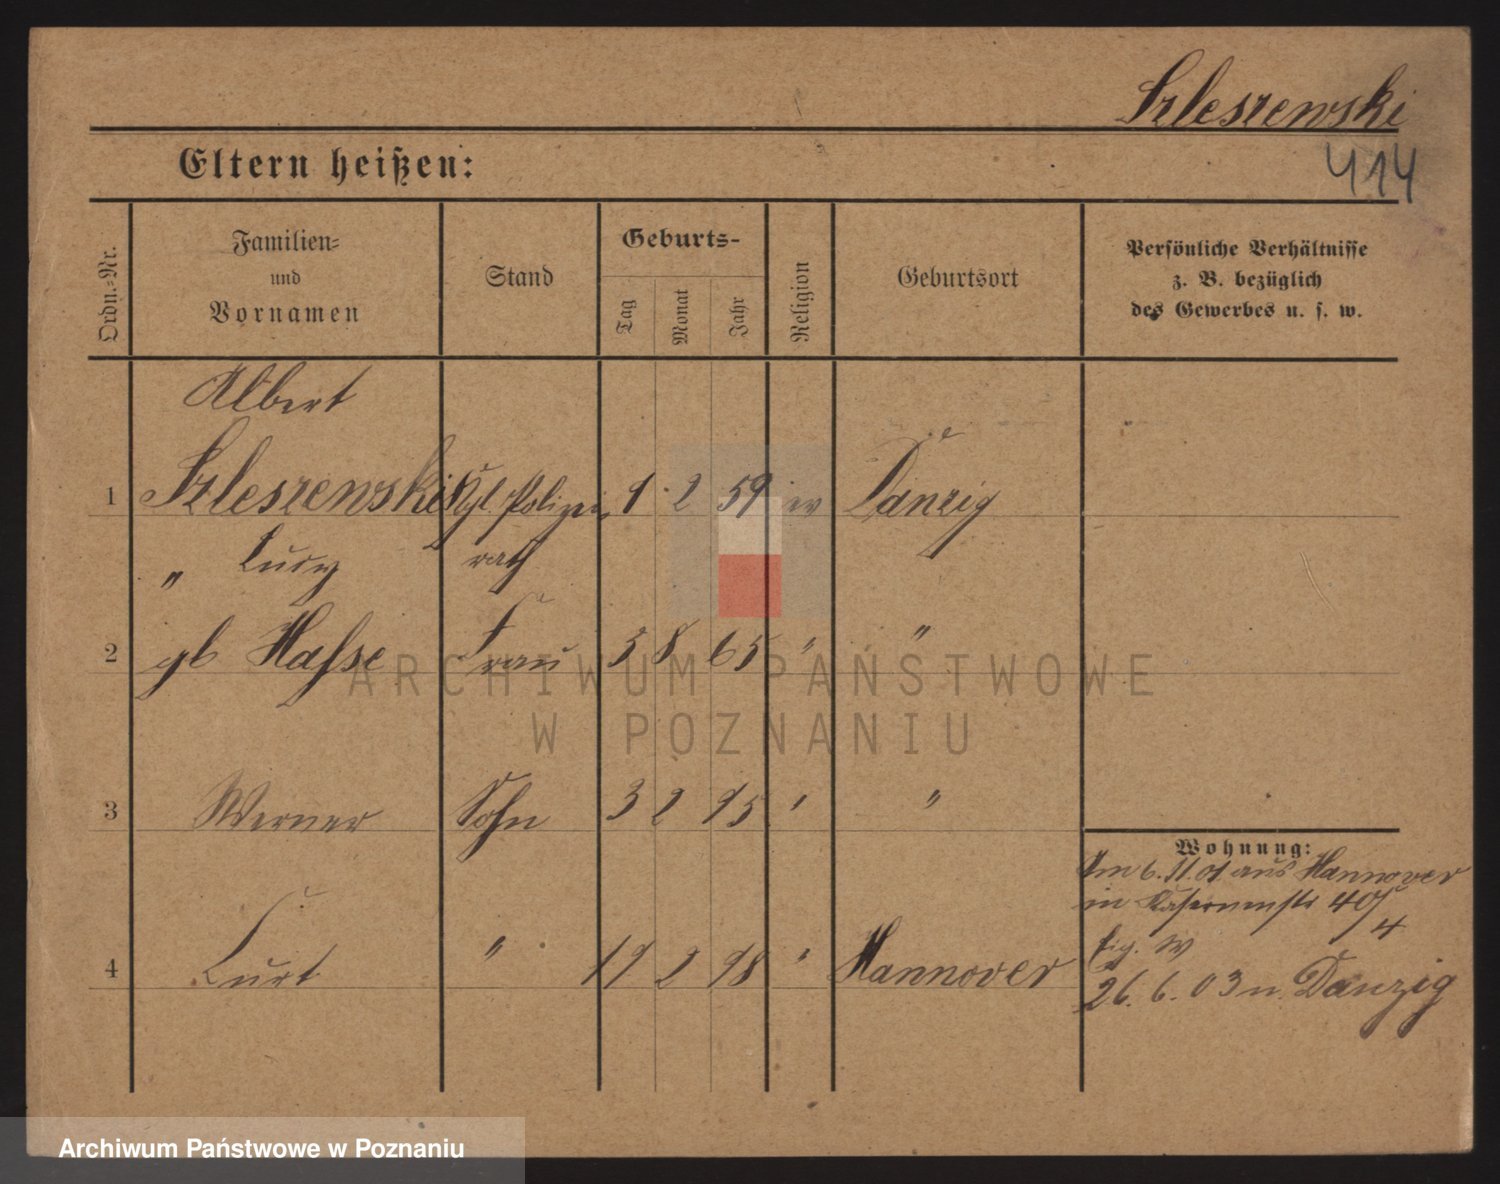 Szleszewski
Eltern heißen:
414
Ordn.=Nr.
Familien=
und
Vornamen
Stand
Geburts-
Tag
Monat
Jahr
Religion
Geburtsort
Persönliche Verhältnisse
z. B. bezüglich
des Gewerbes u. s. w.
Albert
1 Szleszewski Kgl. Polizei 1 2 59 ev Danzig
" Lucy rath
2 gb Hasse Frau 3 8 65 " "
3 Werner Sohn 3 2 95 " "
Wohnung:
Am 6. 11. 01 aus Hannover
in Kasernenstr 4
4 Kurt " 19 2 98 " Hannover
26. 6. 03 n. Danzig
ARCHIWUM PAŃSTWOWE
W POZNANIU
Archiwum Państwowe w Poznaniu